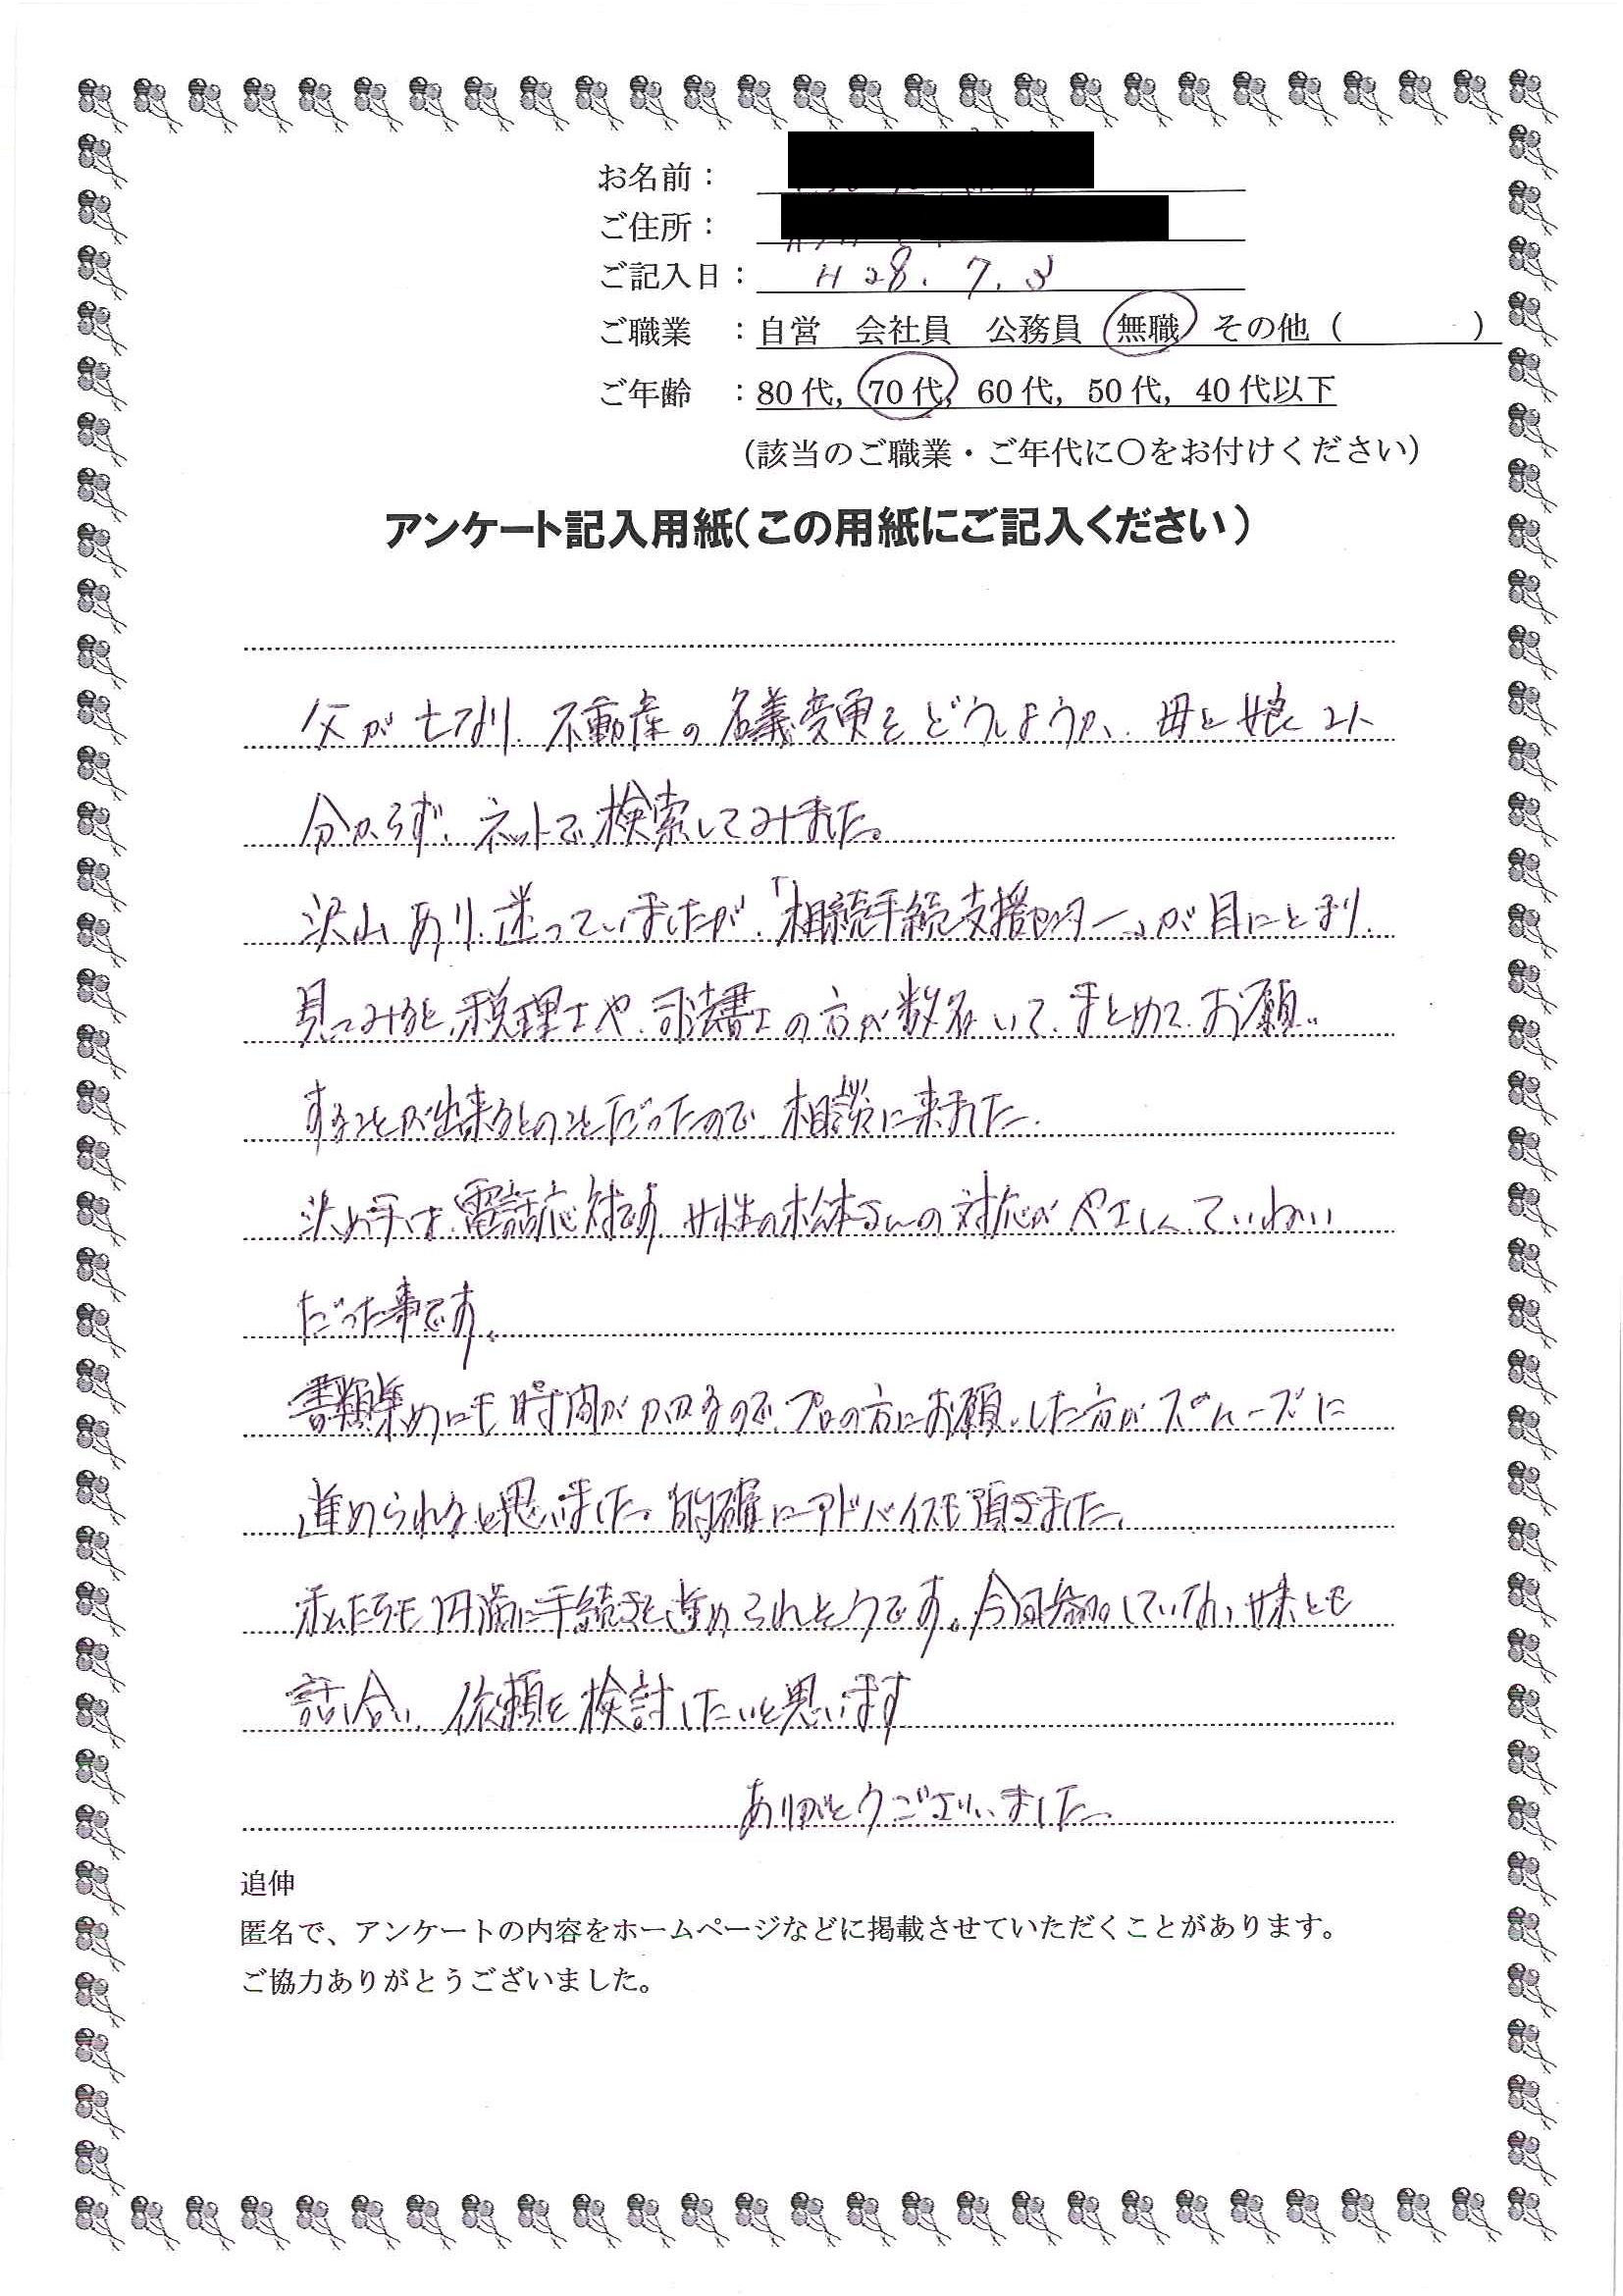 お名前：
ご住所：
ご記入日： H28.7.3
ご職業　：自営　会社員　公務員　無職　その他（　　　　）
ご年齢　：80代，70代，60代，50代，40代以下
（該当のご職業・ご年代に〇をお付けください）
アンケート記入用紙（この用紙にご記入ください）
父が亡なり、不動産の名義変更をどうしようか、母と娘2人
分からず、ネットで検索してみました。
沢山あり、迷っていましたが、「相続手続支援センター」が目にとまり、
見てみると、税理士や、司法書士の方が数名いて、まとめて、お願い
することが出来るとのことだったので、相談に来ました。
決め手は、電話応対です。女性の松本さんの対応がやさしく、ていねい
だった事です。
書類集めにも時間がかかるので、プロの方にお願いした方がスムーズに
進められると思いました。的確にアドバイスも頂きました。
私たちも円満に手続きを進められそうです。今回参加していない妹とも
話し合い、依頼を検討したいと思います
ありがとうございました。
追伸
匿名で、アンケートの内容をホームページなどに掲載させていただくことがあります。
ご協力ありがとうございました。